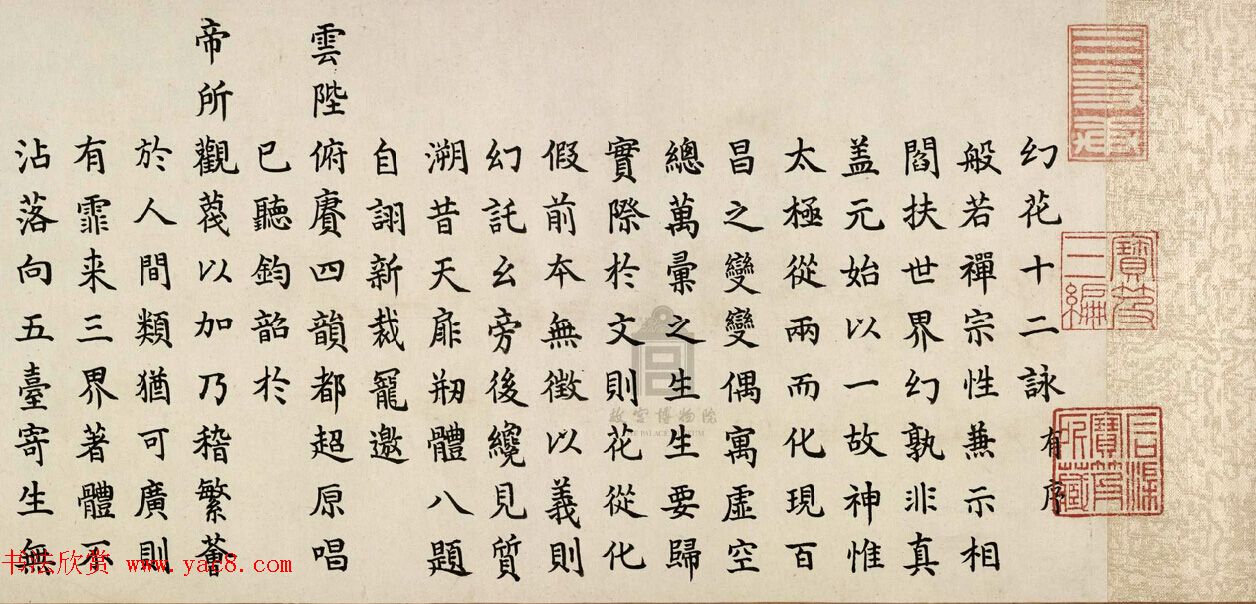 幻花十二詠 有序
般若禪宗性無示相
閻扶世界幻孰非真
盖元始以一故神惟
太極從兩而化現百
昌之變變偶寓虛空
總萬彙之生生要歸
實際於文則花從化
假前本無徵以義則
幻託幺旁後纔見質
溯昔天扉刱體八題
自詡新裁寵邀
雲陛俯賡四韻都超原唱
已聽鈞韶於
帝所觀蕿以加乃稽繁薈
於人間類猶可廣則
有霏来三界著體不
沾落向五臺寄生無
寶笈三編
石渠寶笈所藏
故宮博物院
THE PALACE MUSEUM
书法欣赏 www.yac8.com